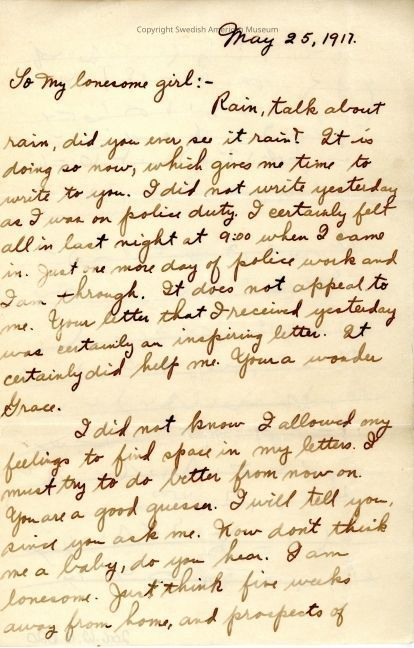 Copyright Swedish American Museum
May 25, 1917.
To My lonesome girl:-
Rain, talk about
rain, did you ever see it rain? It is
doing so now, which gives me time to
write to you. I did not write yesterday
as I was on police duty. I certainly felt
all in last night at 9:00 when I came
in. Just one more day of police work and
I am through. It does not appeal to
me. Your letter that I received yesterday
was certainly an inspiring letter. It
certainly did help me. Your a wonder
Grace.
I did not know I allowed my
feelings to find space in my letters. I
must try to do better from now on.
You are a good guesser. I will tell you,
since you ask me. Now don't think
me a baby, do you hear. I am
lonesome. Just think five weeks
away from home, and prospects of